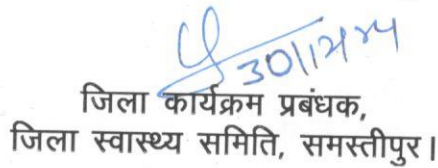 30/12/24
जिला कार्यक्रम प्रबंधक,
जिला स्वास्थ्य समिति, समस्तीपुर।